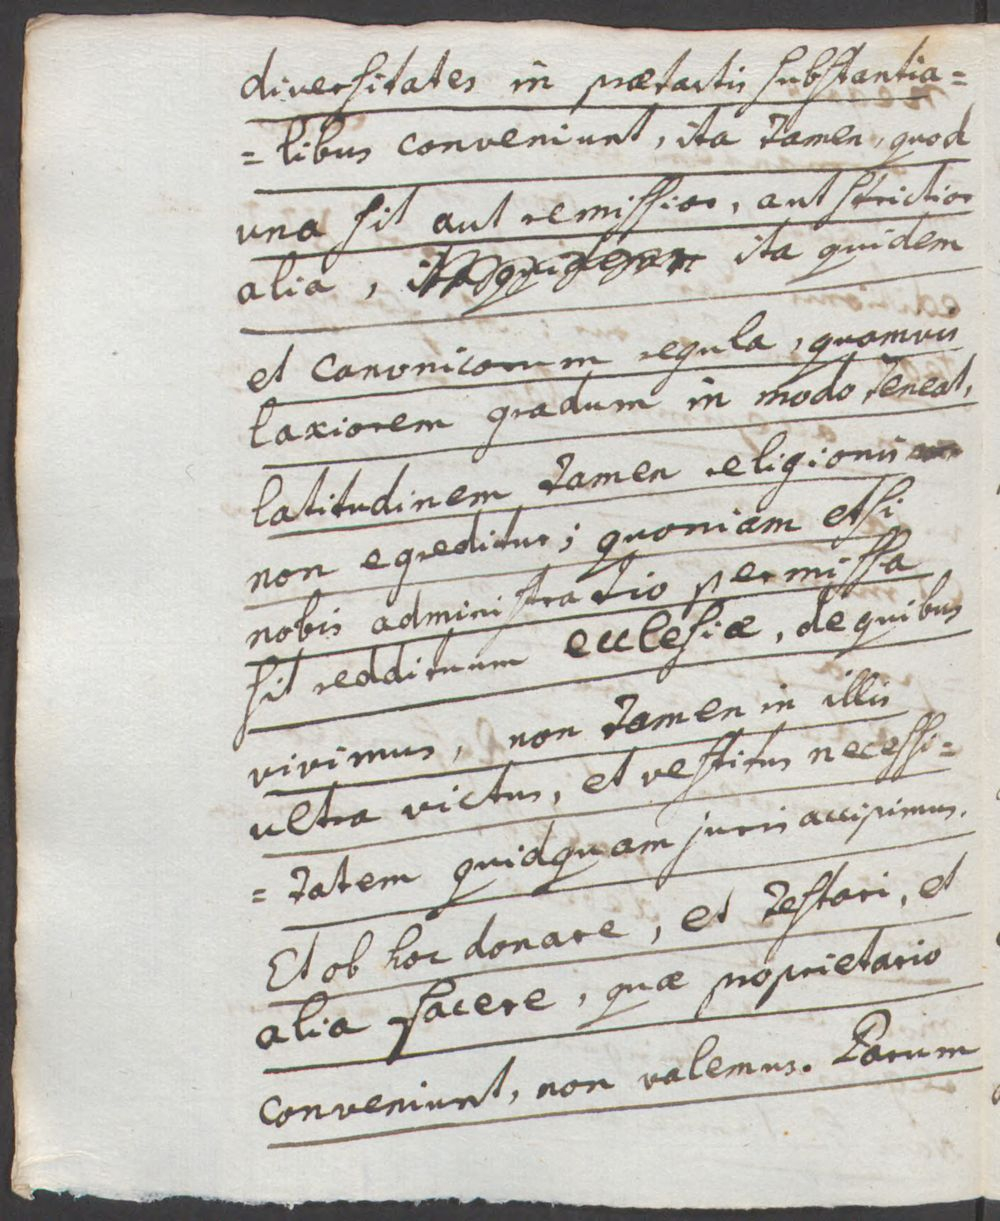 diversitates in prætactis substantia=
=libus conveniunt, ita tamen, quod
una sit aut remissior, aut strictior
alia, ita quidem
et Canonicorum regula, quamvis
laxiorem gradum in modo teneat,
latitudinem tamen religionis
non egreditur; quoniam etsi
nobis administratio permissa
sit reddituum ecclesiæ, de quibus
vivimus, non tamen in illis
ultra victus, et vestitus necessi=
=tatem quidquam juris accipimus.
Et ob hoc donare, et testari, et
alia facere, quæ proprietario
conveniunt, non valemus. Parum